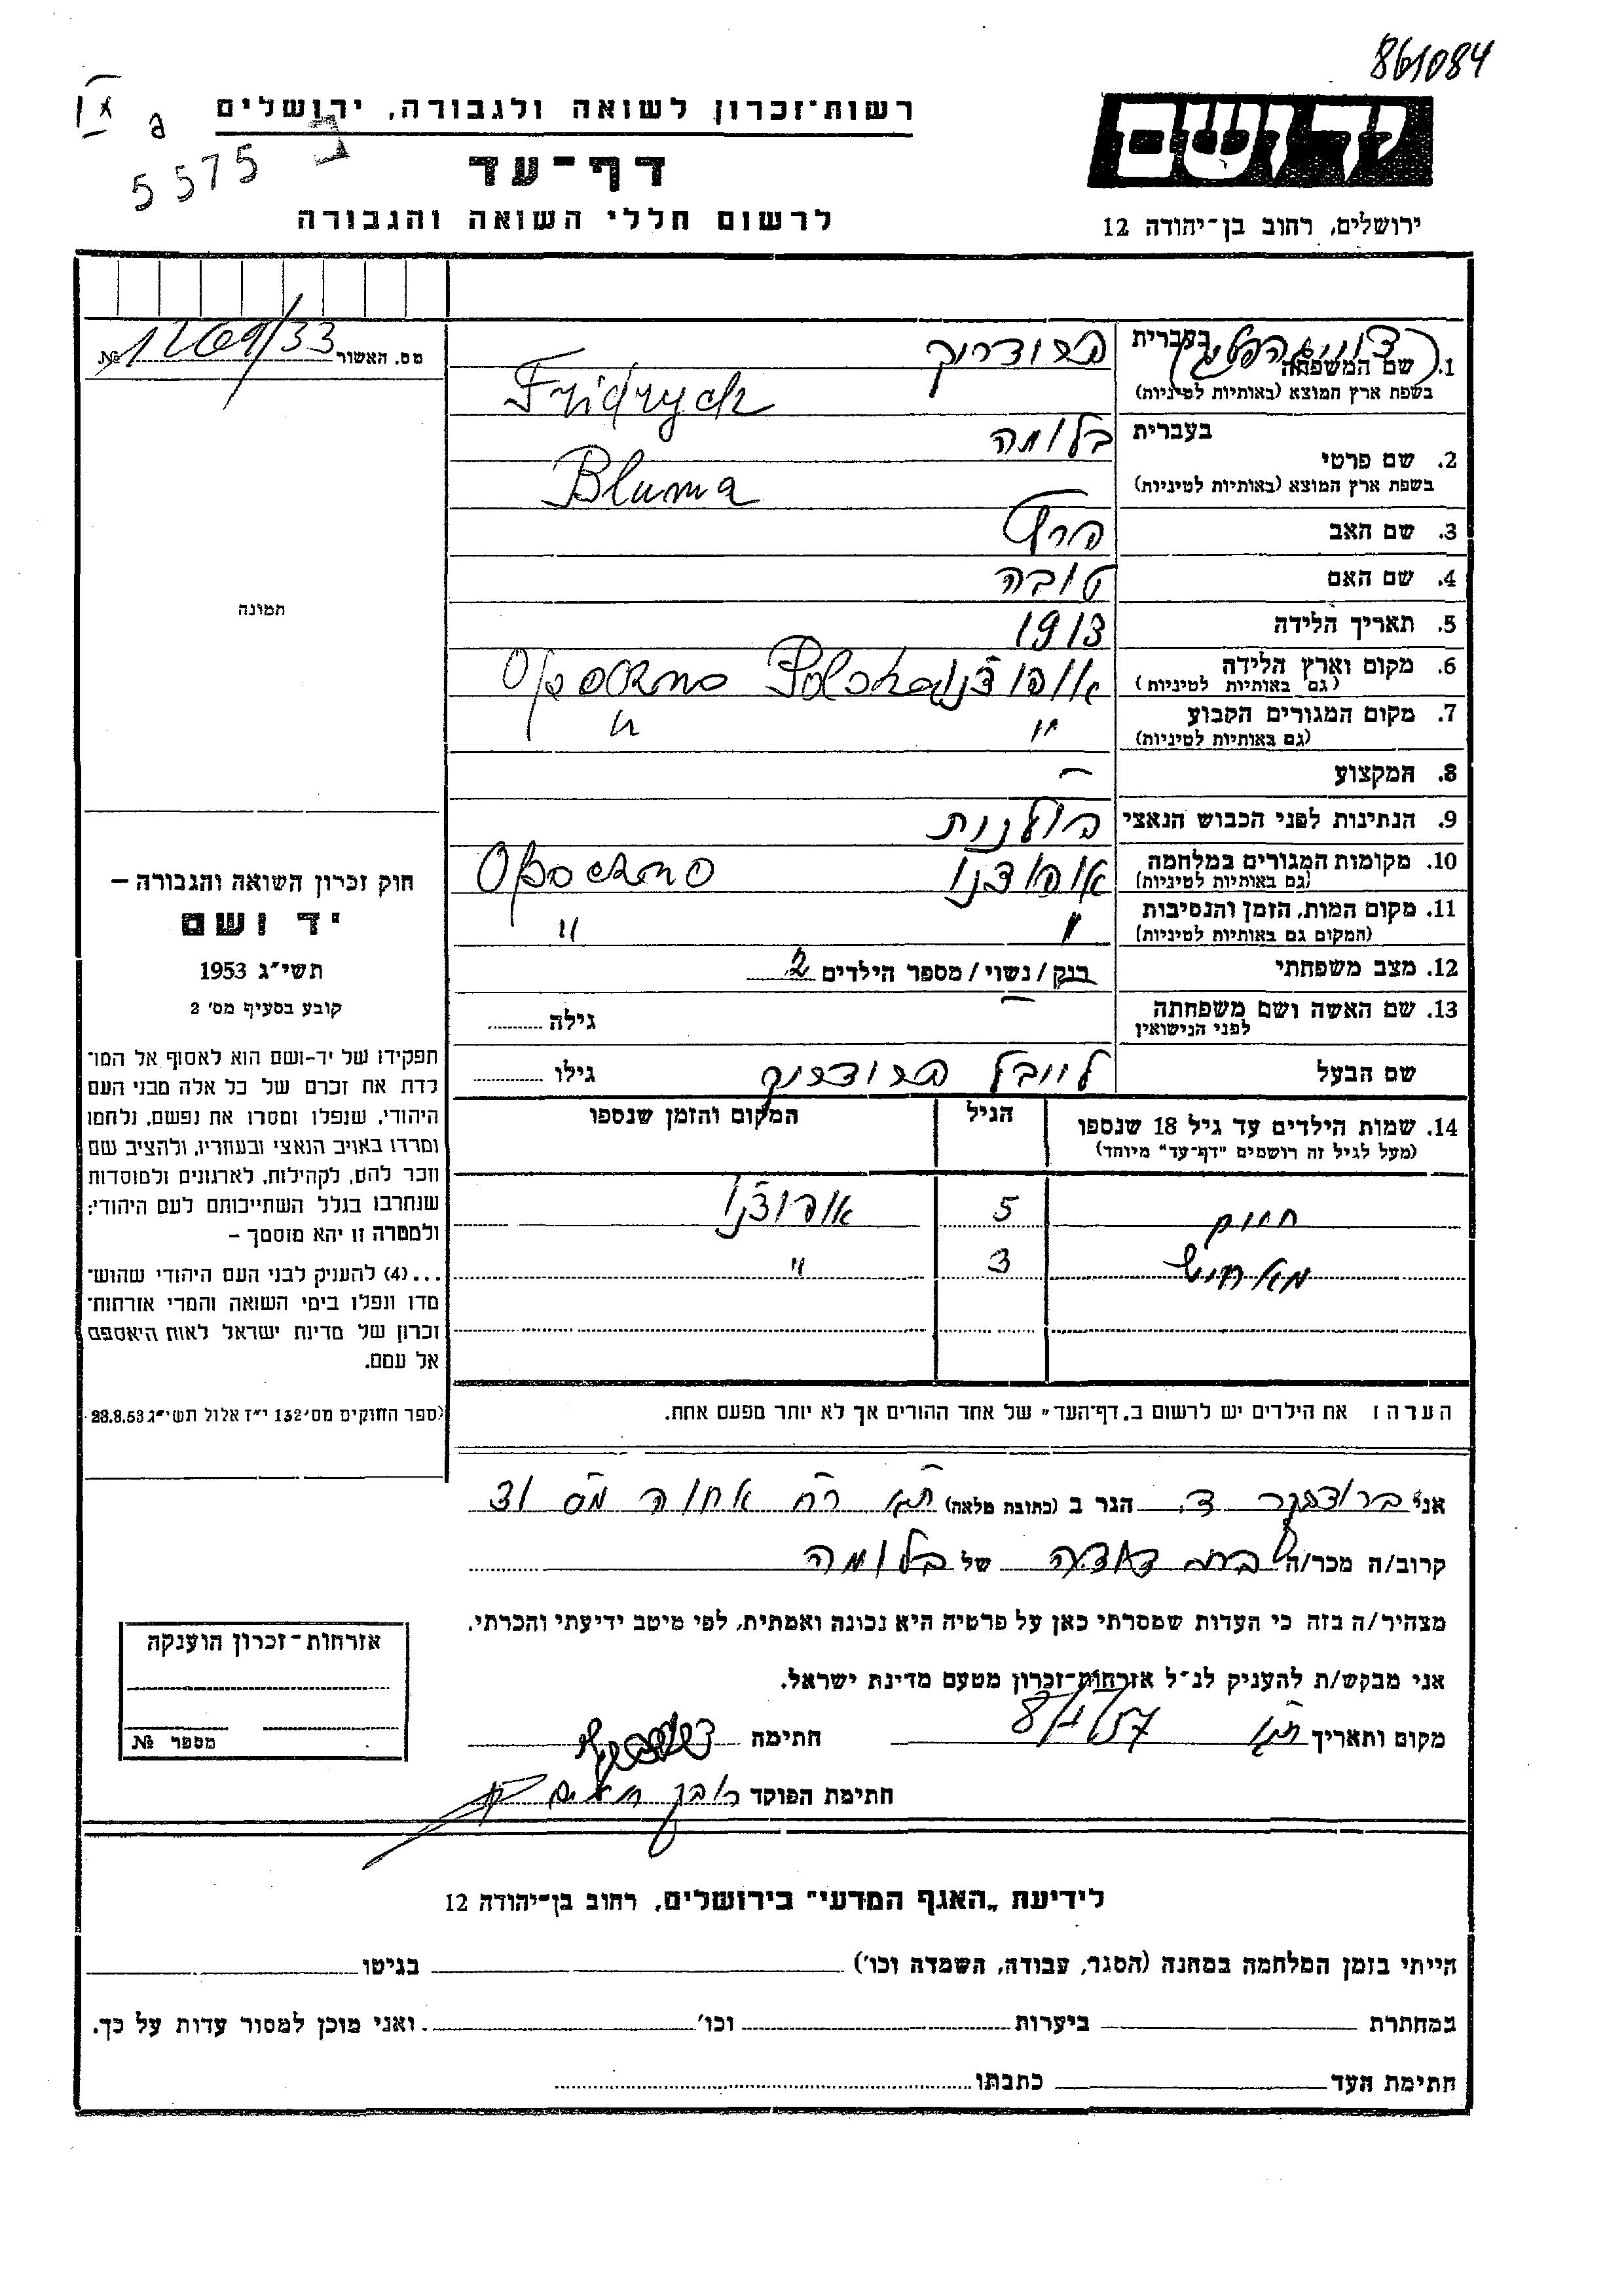 861084
רשות־זכרון לשואה ולגבורה, ירושלים
5575
יד ושם
דף־עד
לרשום חללי השואה והגבורה
ירושלים, רחוב בן־יהודה 12
מס. האשור №
1. שם המשפחה בעברית פרידריך
בשפת ארץ המוצא (באותיות לטיניות) Fridrych
2. שם פרטי בעברית בלומה
בשפת ארץ המוצא (באותיות לטיניות) Bluma
3. שם האב
4. שם האם טובה
5. תאריך הלידה 1913
6. מקום וארץ הלידה אופוצ'נו Opoczno Polska
(גם באותיות לטיניות)
7. מקום המגורים הקבוע " "
(גם באותיות לטיניות)
8. המקצוע —
9. הנתינות לפני הכבוש הנאצי פולנית
10. מקומות המגורים במלחמה אופוצנו Opoczno
(גם באותיות לטיניות)
11. מקום המות, הזמן והנסיבות " "
(המקום גם באותיות לטיניות)
12. מצב משפחתי רוק / נשוי / מספר הילדים 2
13. שם האשה ושם משפחתה — גילה
לפני הנישואין
שם הבעל לייבל פרידריך גילו
14. שמות הילדים עד גיל 18 שנספו הגיל המקום והזמן שנספו
(מעל לגיל זה רושמים "דף־עד" מיוחד)
5 אופוצ'נו
3 "
הערה: את הילדים יש לרשום ב„דף־העד" של אחד ההורים אך לא יותר מפעם אחת.
תמונה
חוק זכרון השואה והגבורה –
יד ושם
תשי"ג 1953
קובע בסעיף מס' 2
תפקידו של יד-ושם הוא לאסוף אל המו־
לדת את זכרם של כל אלה מבני העם
היהודי, שנפלו ומסרו את נפשם, נלחמו
ומרדו באויב הנאצי ובעוזריו, ולהציב שם
וזכר להם, לקהילות, לארגונים ולמוסדות
שנחרבו בגלל השתייכותם לעם היהודי;
ולמטרה זו יהא מוסמך –
...(4) להעניק לבני העם היהודי שהוש־
מדו ונפלו בימי השואה והמרי אזרחות־
זכרון של מדינת ישראל לאות היאספם
אל עמם.
(ספר החוקים מס' 132 י"ז אלול תשי"ג 28.8.53
אני ד. הגר ב (כתובת מלאה) רח אחוה מס
קרוב/ה מכר/ה בת דודה של בלומה
מצהיר/ה בזה כי העדות שמסרתי כאן על פרטיה היא נכונה ואמתית, לפי מיטב ידיעתי והכרתי.
אני מבקש/ת להעניק לנ"ל אזרחות־זכרון מטעם מדינת ישראל.
מקום ותאריך חתימה
חתימת הפוקד
אזרחות־זכרון הוענקה
מספר №
לידיעת „האגף המדעי" בירושלים, רחוב בן־יהודה 12
הייתי בזמן המלחמה במחנה (הסגר, עבודה, השמדה וכו') בגיטו
במחתרת ביערות וכו' ואני מוכן למסור עדות על כך.
חתימת העד כתבתו